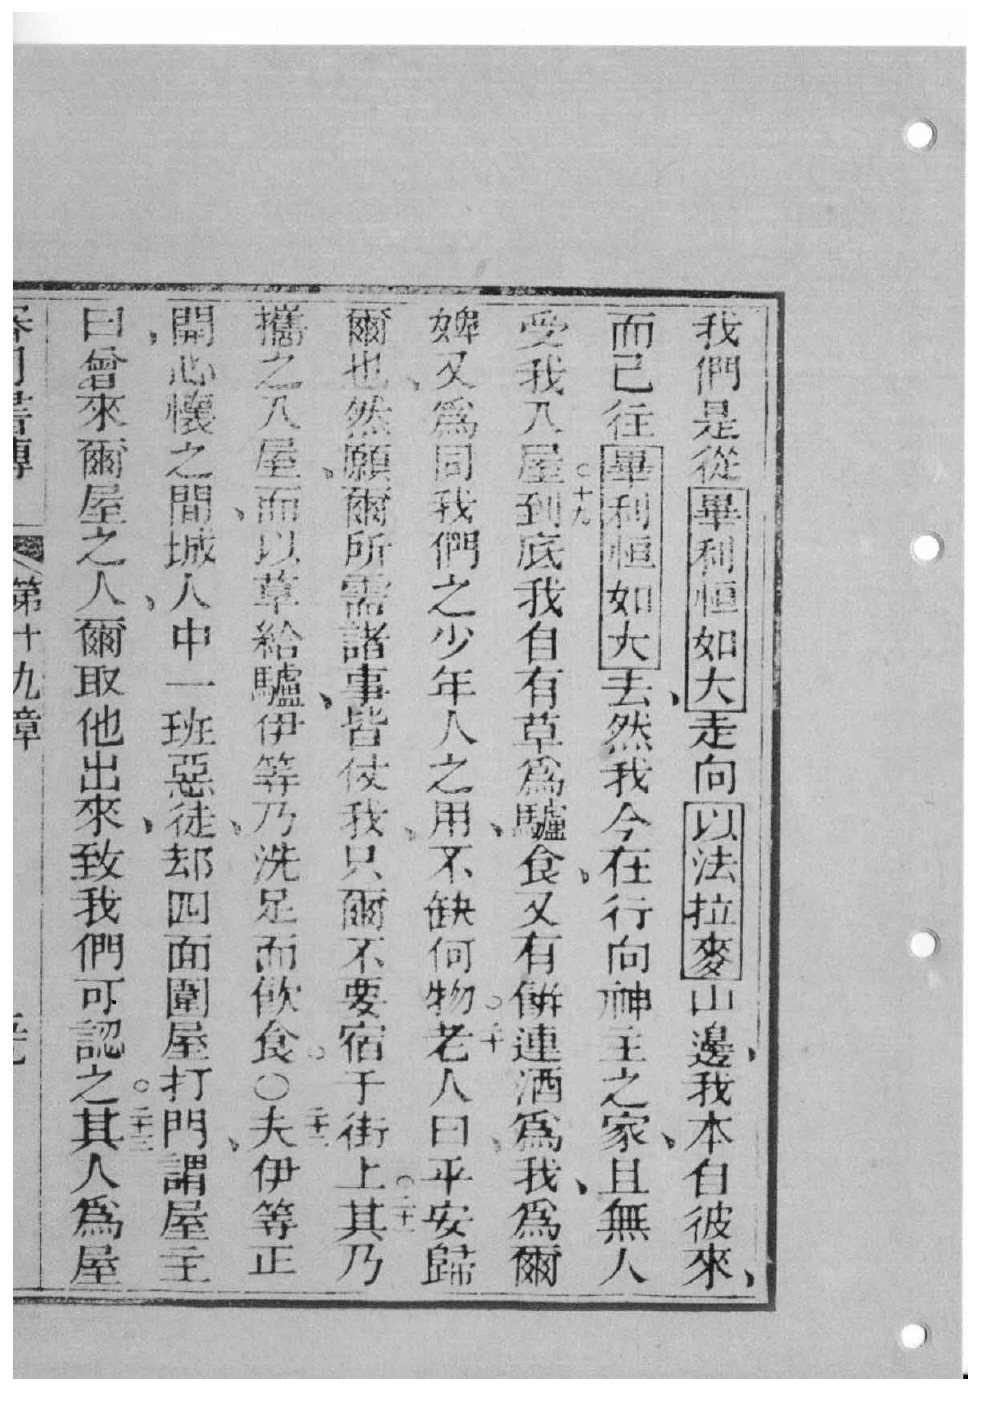 我們是從畢利恒如大走向以法拉麥山邊、我本自彼來、
而己往畢利恒如大去、然我今在行向神主之家、且無人
受我入屋。十九到底我自有草爲驢食、又有餅連酒爲我、爲爾
婢又爲同我們之少年人之用、不缺何物。二十老人曰、平安歸
爾也、然願爾所需諸事皆仗我、只爾不要宿于街上。二十一其乃
攜之入屋、而以草給驢、伊等乃洗足而飲食。○二十二夫伊等正
開心懷之間、城人中一班惡徒、却四面圍屋打門、謂屋主
曰、曾來爾屋之人、爾取他出來、致我們可認之。二十三其人爲屋
審司書傳 第十九章